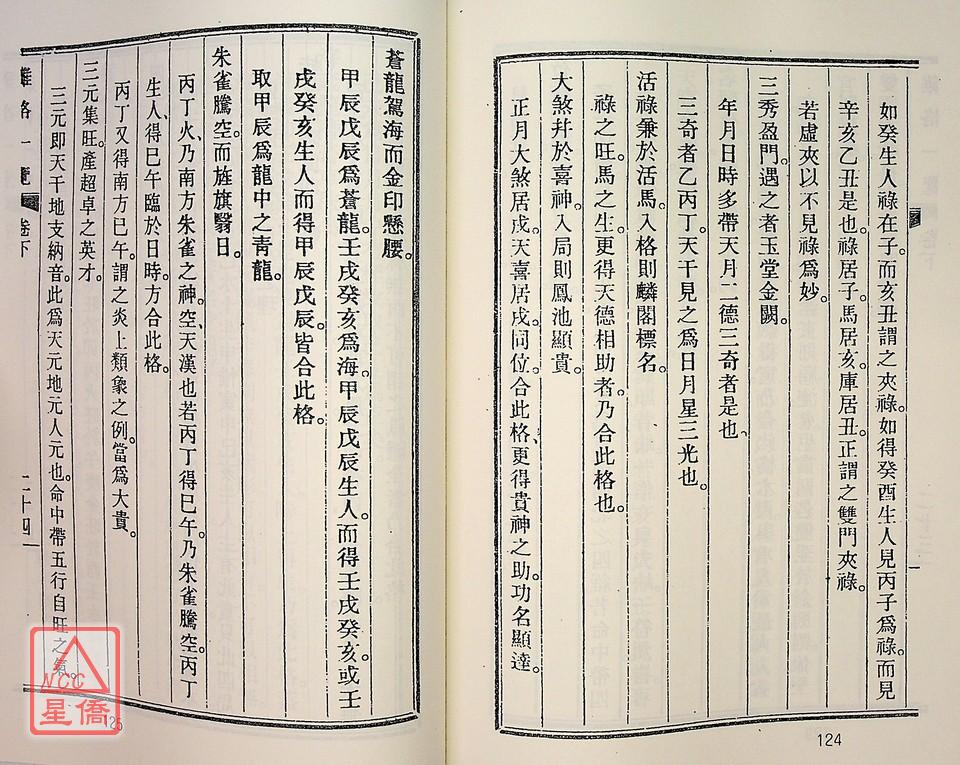 如癸生人祿在子。而亥丑謂之夾祿。如得癸酉生人見丙子爲祿。而見
辛亥乙丑是也。祿居子。馬居亥。庫居丑。正謂之雙門夾祿。
若虛夾以不見祿爲妙。
三秀盈門。遇之者玉堂金闕。
年月日時多帶天月二德三奇者是也。
三奇者乙丙丁。天干見之爲日月星三光也。
活祿兼於活馬。入格則麟閣標名。
祿之旺。馬之生。更得天德相助者。乃合此格也。
大煞并於喜神。入局則鳳池顯貴。
正月大煞居戌。天喜居戌。同位合此格、更得貴神之助。功名顯達。
124
蒼龍駕海而金印懸腰。
甲辰戊辰爲蒼龍。壬戌癸亥爲海。甲辰戊辰生人。而得壬戌癸亥。或壬
戌癸亥生人而得甲辰戊辰。皆合此格。
取甲辰爲龍中之靑龍。
朱雀騰空。而旌旗翳日。
丙丁火、乃南方朱雀之神。空、天漢也。若丙丁得巳午。乃朱雀騰空。丙丁
生人、得巳午臨於日時。方合此格。
丙丁又得南方巳午。謂之炎上類象之例。當爲大貴。
三元集旺。產超卓之英才。
三元即天干地支納音。此爲天元地元人元也。命中帶五行自旺之氣。
雜格一覽
卷下
二十四
125
NCC
星僑